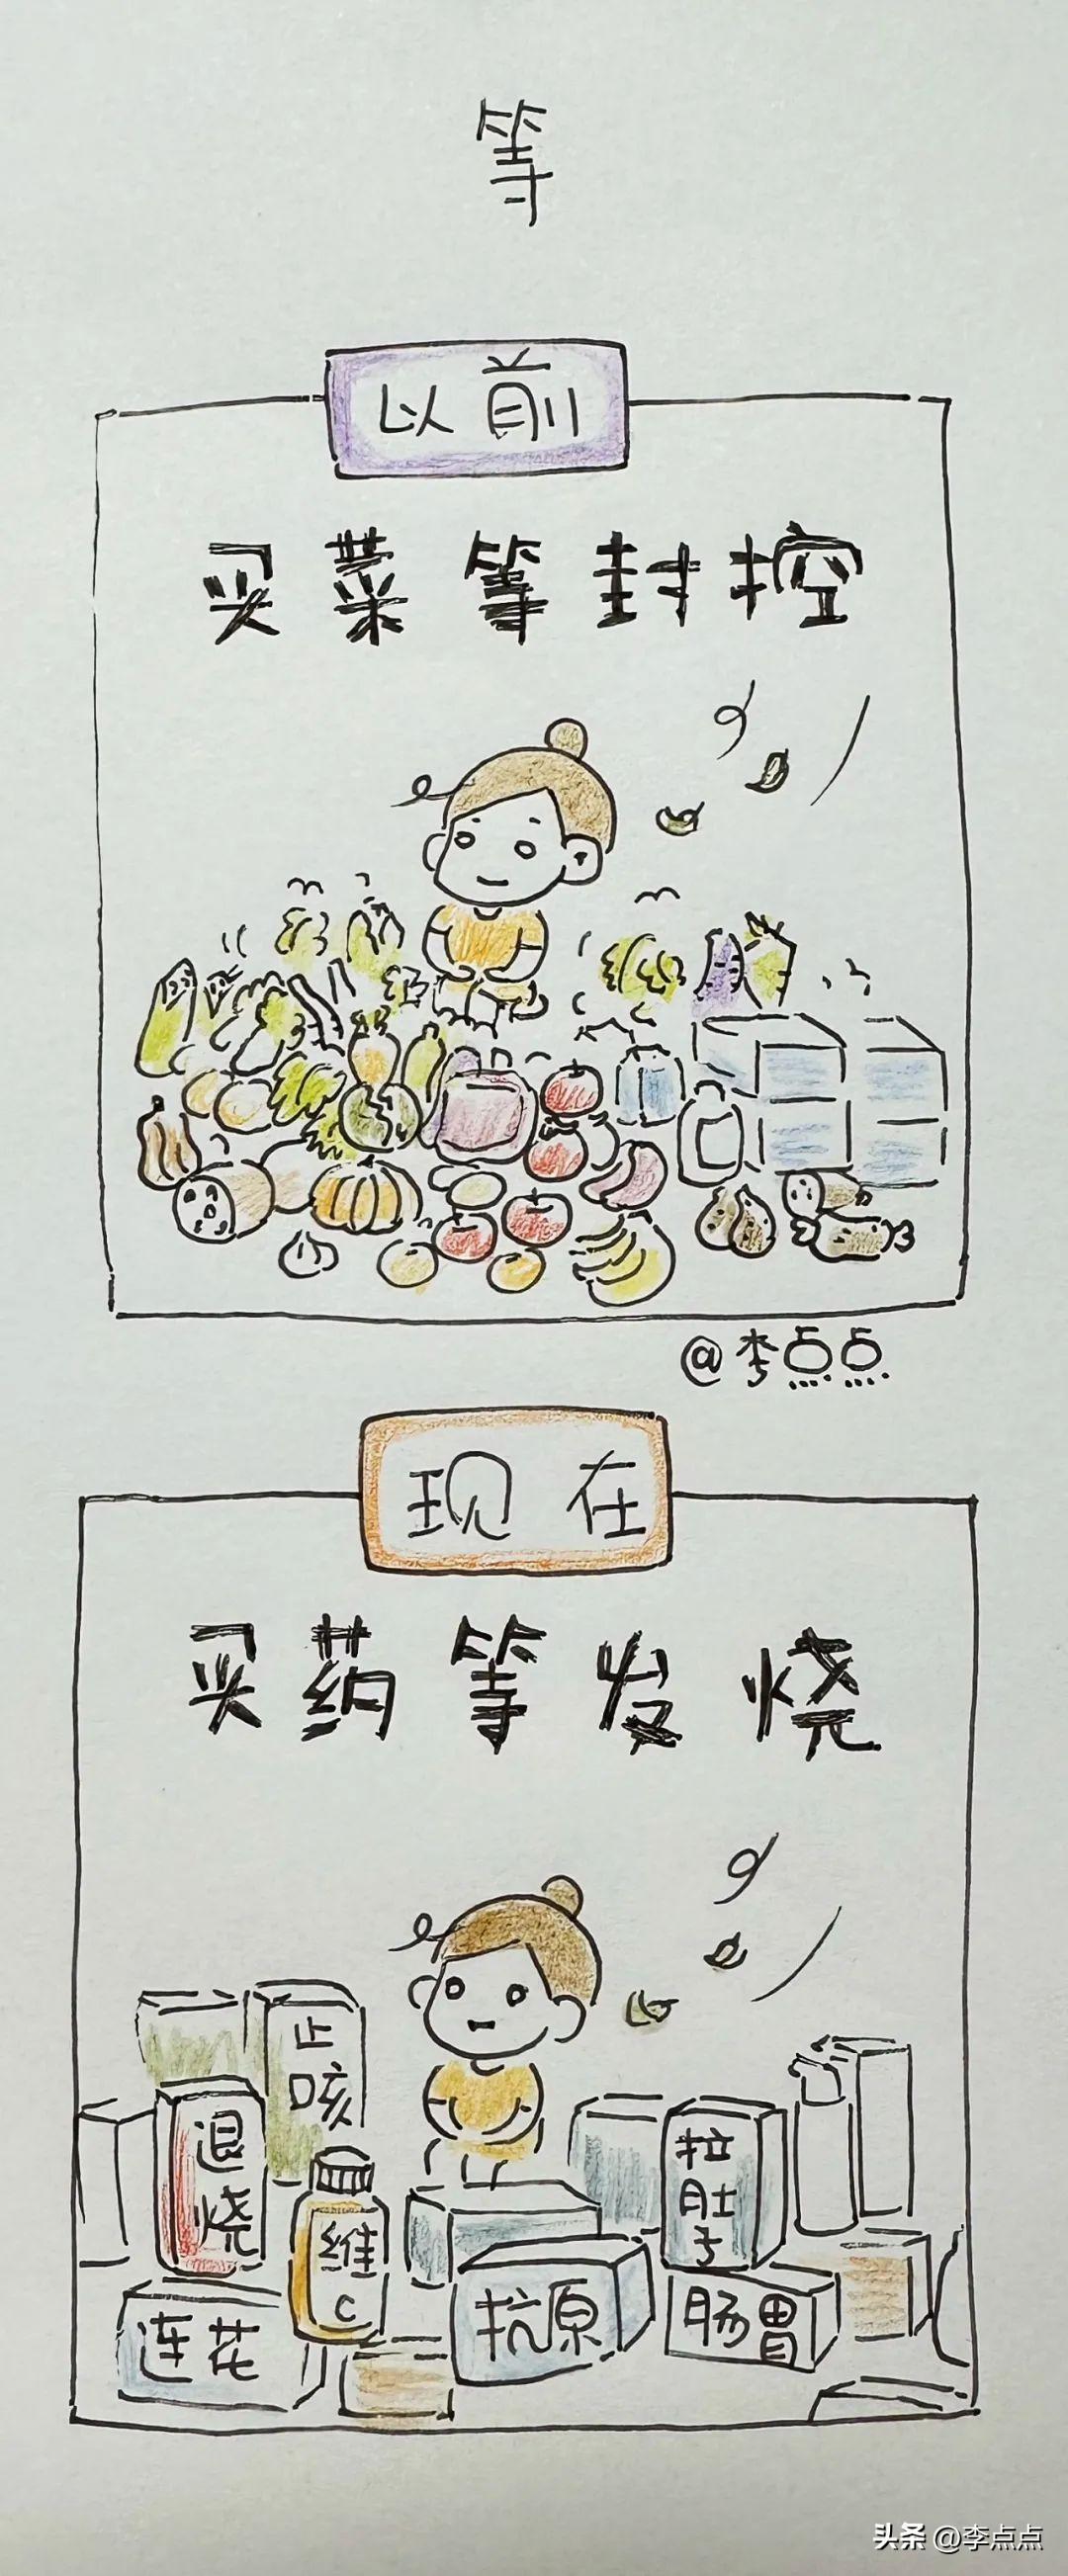 等
以前
买菜等封控
@李点点
现在
买药等发烧
止咳
退烧
维C
拉肚子
连花
抗原
肠胃
头条 @李点点